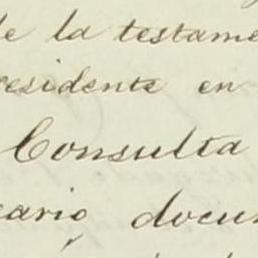 de la testame
residente en
Consulta
cario, docu